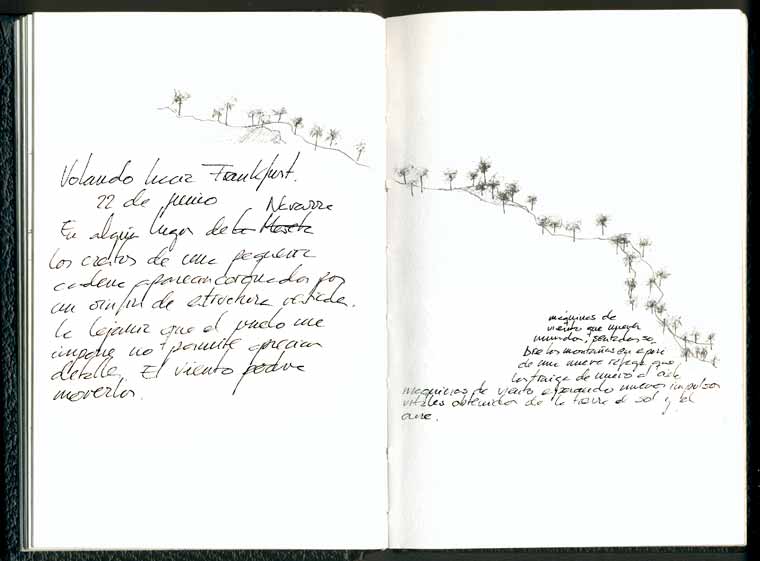 Volando hacia Frankfurt.
22 de junio Navarra
En algún lugar de la Meseta
las crestas de una pequeña
cadena aparecían coronadas por
un sinfín de estructuras verticales.
La lejanía que el vuelo me
impone no permite apreciar
detalles. El viento podría
moverlos.
máquinas de
viento que mueven
mundos, sentadas so
bre las montañas en espera
de una nueva ráfaga que
los traiga de nuevo al aire
máquinas de viento esperando nuevos impulsos
vitales obtenidos de la tierra el sol y el
aire.